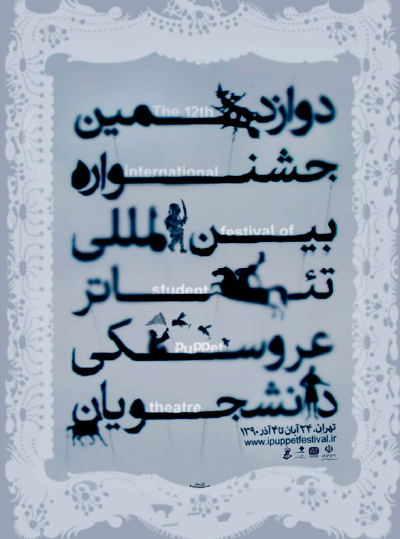 دوازدهمین
The 12th
جشنواره
international
بین‌المللی
festival of
تئاتر
student
عروسکی
puppet
دانشجویان
theatre
تهران. ۲۴ آبان تا ۴ آذر ۱۳۹۰
www.ipuppetfestival.ir